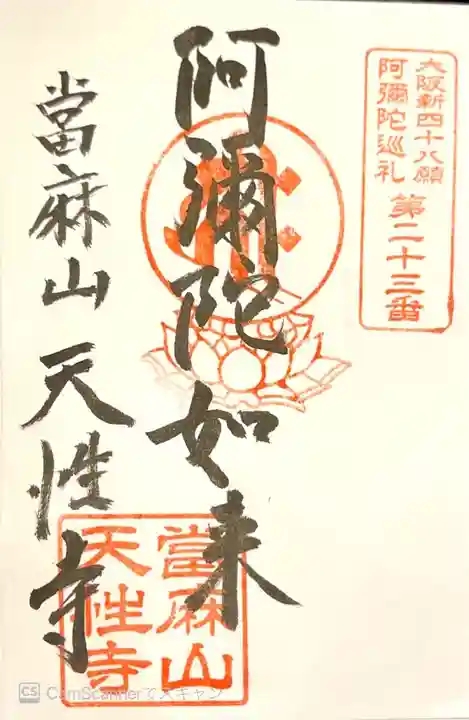 大阪新四十八願
阿彌陀巡礼 第二十三番
阿彌陀如来
當麻山 天性寺
當麻山
天性寺
CS CamScannerでスキャン